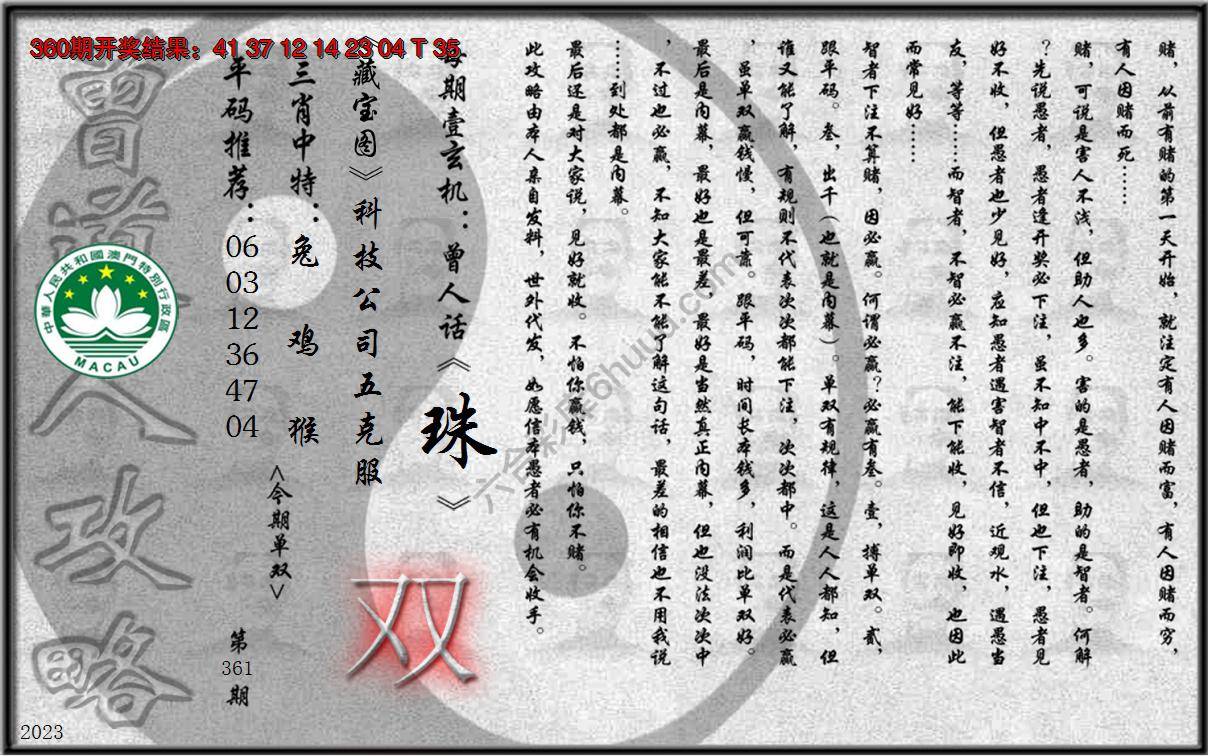 360期开奖结果：41 37 12 14 23 04 T 35
赌，从前有赌的第一天开始，就注定有人因赌而富，有人因赌而穷，
有人因赌而死……
赌，可说是害人不浅，但助人也多。害的是愚者，助的是智者。何解
？先说愚者，愚者逢开奖必下注，虽不知中不中，但也下注，愚者见
好不收，但愚者也少见好，应知愚者遇害智者不信，近观水，遇愚当
友，等等……而智者，不智必赢不注，能下能收，见好即收，也因此
而常见好……
智者下注不算赌，因必赢。何谓必赢？必赢有叁。壹，搏单双。贰，
跟平码。叁，出千（也就是内幕）。单双有规律，这是人人都知，但
谁又能了解，有规则不代表次次都能下注，次次都中。而是代表必赢
，虽单双赢钱慢，但可靠。跟平码，时间长本钱多，利润比单双好。
最后是内幕，最好也是最差，最好是当然真正内幕，但也没法次次中
，不过也必赢，不知大家能不能了解这句话，最差的相信也不用我说
……到处都是内幕。
最后还是对大家说，见好就收。不怕你赢钱，只怕你不赌。
此攻略由本人亲自发料，世外代发，如愿信本愚者必有机会收手。
每期壹玄机：曾人话《珠》
《藏宝图》科技公司五克服
双
三肖中特：兔 鸡 猴
<今期单双>
平码推荐：06 03 12 36 47 04
第361期
曾道人攻略
中華人民共和國澳門特別行政區
MACAU
2023